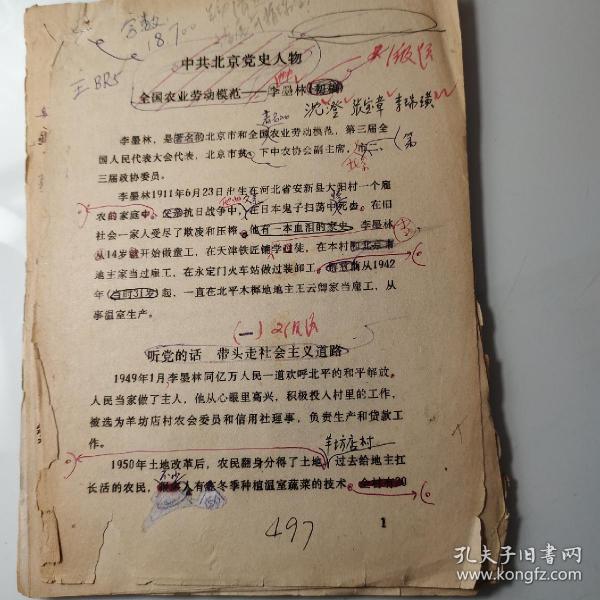 字数
18700
王BR5
中共北京党史人物
全国农业劳动模范——李墨林(初稿)
沈澄 张宝章 李珠璜
李墨林,是著名的北京市和全国农业劳动模范,第三届全
国人民代表大会代表,北京市贫、下中农协会副主席,市二、
三届政协委员。
李墨林1911年6月23日出生在河北省安新县大阳村一个雇
农的家庭中。父亲抗日战争中,在日本鬼子扫荡中死去。在旧
社会一家人受尽了欺凌和压榨。他有一本血泪的家史。李墨林
从14岁就开始做童工,在天津铁匠铺学过徒,在本村和北京市
地主家当过雇工,在永定门火车站做过装卸工。从1942
年(当时31岁)起,一直在北平木樨地地主王云卿家当雇工,从
事温室生产。
(一)
听党的话 带头走社会主义道路
1949年1月,李墨林同亿万人民一道欢呼北平的和平解放。
人民当家做了主人,他从心眼里高兴,积极投入村里的工作,
被选为羊坊店村农会委员和信用社理事,负责生产和贷款工
作。
羊坊店村
1950年土地改革后,农民翻身分得了土地,过去给地主扛
长活的农民,很多人有着冬季种植温室蔬菜的技术。全村有30
497
1
孔夫子旧书网
www.kongfz.com